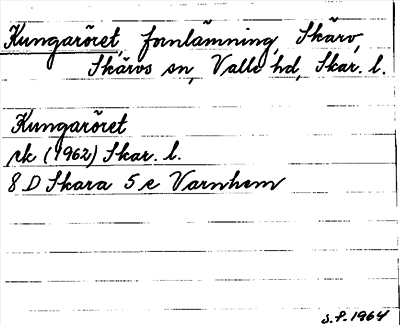 Kungaröret, fornlämning, Skärv,
Skärvs sn, Valle hd, Skar. l.
Kungaröret
rk (1962) Skar. l.
8 D Skara 5 e Varnhem
S.P. 1964